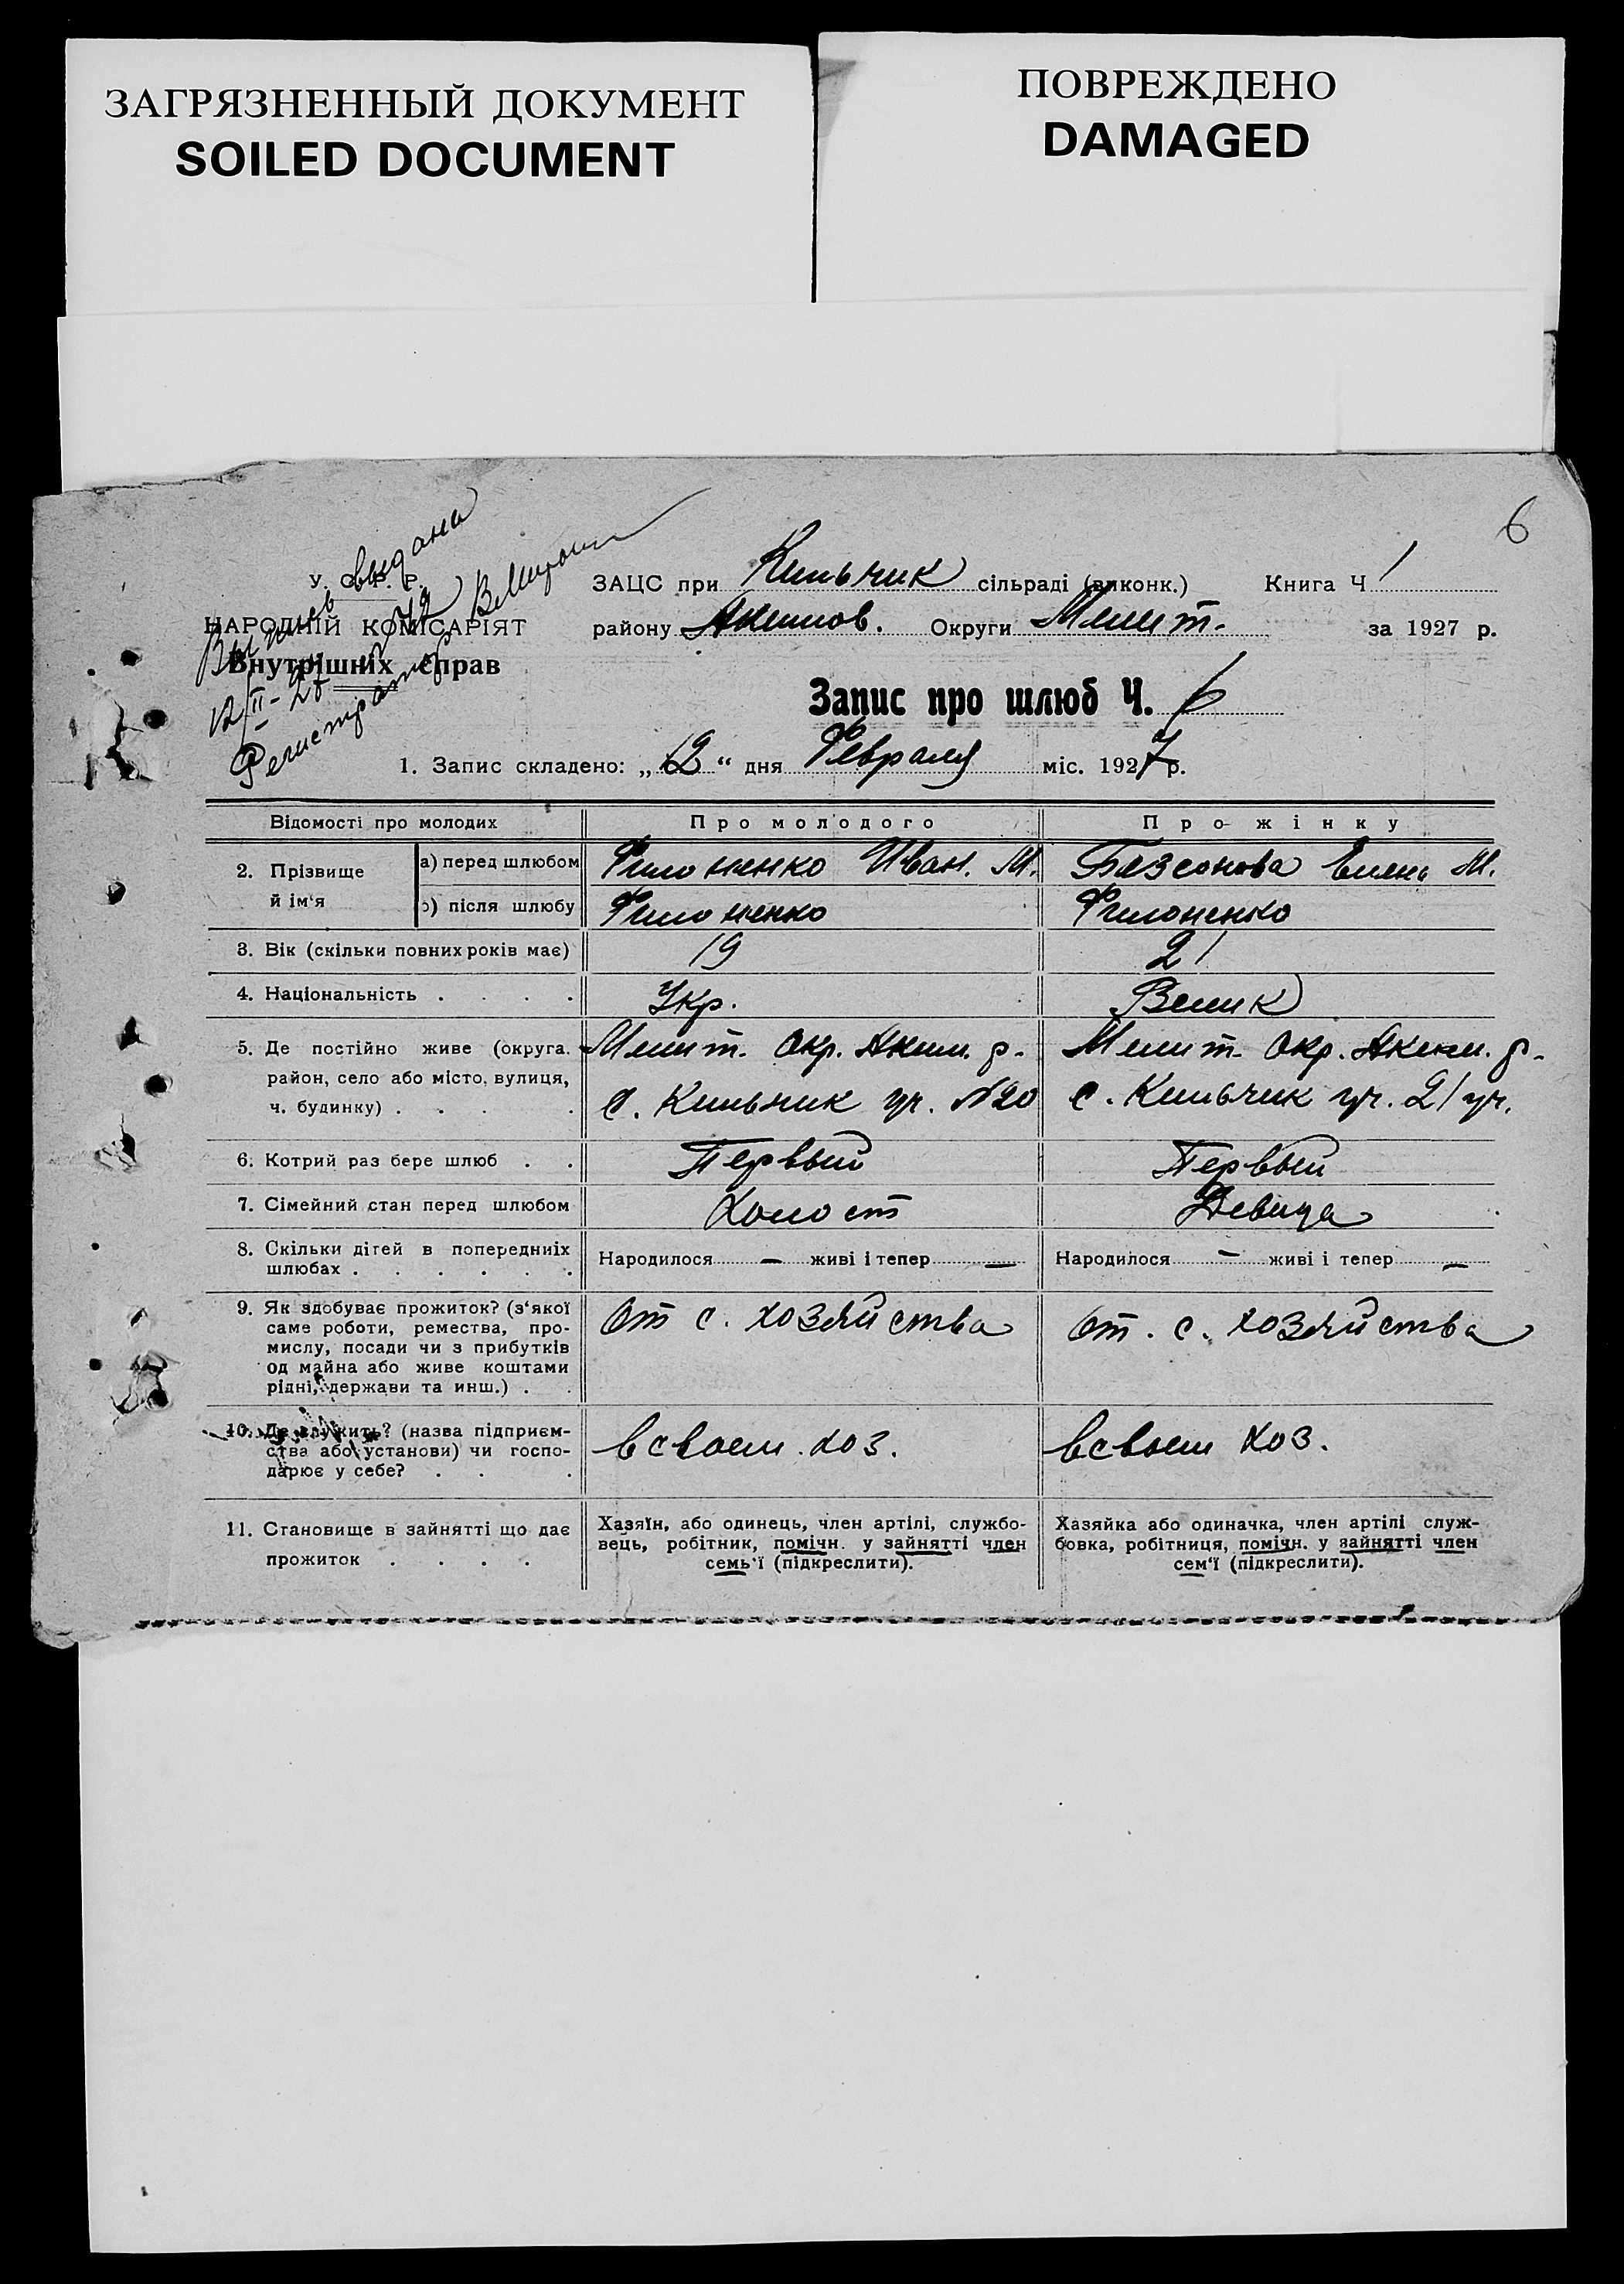 ЗАГРЯЗНЕННЫЙ ДОКУМЕНТ
SOILED DOCUMENT
ПОВРЕЖДЕНО
DAMAGED
6
выдана
12/II-27
Регистратор
У. С. Р. Р.
НАРОДНІЙ КОМІСАРІЯТ
Внутрішніх справ
ЗАЦС при Кильчик сільраді (виконк.) Книга Ч 1
району Акимов. Округи Мелит. за 1927 р.
Запис про шлюб Ч. 6
1. Запис складено: „12“ дня Февраля міс. 1927 р.
Відомості про молодих Про молодого Про жінку
2. Прізвище й ім‘я а) перед шлюбом Филоненко Иван. М. Базсонова Елена М.
б) після шлюбу Филоненко Филоненко
3. Вік (скільки повних років має) 19 21
4. Національність . . . . Укр. Велик
5. Де постійно живе (округа. Мелит. Окр. Аким. р. Мелит. Окр. Аким. р.
район, село або місто, вулиця,
ч. будинку) . . . . с. Кильчик уч. №20 с. Кильчик уч. 21 уч.
6. Котрий раз бере шлюб . . Первый Первый
7. Сімейний стан перед шлюбом Холост Девица
8. Скільки дітей в попередниіх Народилося — живі і тепер — Народилося — живі і тепер —
шлюбах . . . . . .
9. Як здобуває прожиток? (з‘якої От с. хозяйства от. с. хозяйства
саме роботи, ремества, про-
мислу, посади чи з прибутків
од майна або живе коштами
рідні, держави та инш.) . .
10. Де служить? (назва підприєм- в своем хоз. в своем хоз.
ства або установи) чи госпо-
дарює у себе? . . .
11. Становище в зайнятті що дає
прожиток . . . .
Хазяїн, або одинець, член артілі, службо-
вець, робітник, помічн. у зайнятті член
семь‘ї (підкреслити).
Хазяйка або одиначка, член артілі служ-
бовка, робітниця, помічн. у зайнятті член
сем‘ї (підкреслити).